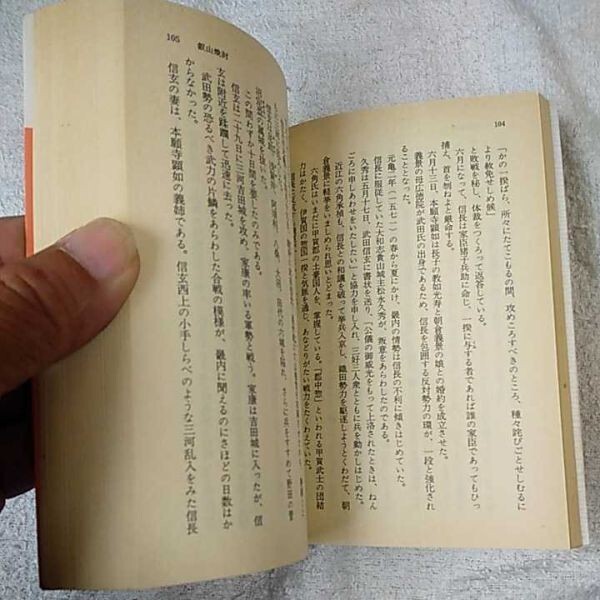 104
「かの一揆ばら、所々にたてこもるの間、攻めころすべきのところ、種々詫びごとせしむるに
より赦免せしめ候」
と敗戦を秘し、体裁をつくろって返答している。
六月になって、信長は家臣猪子兵助に命じ、一揆に与する者であれば誰の家臣であってもひっ
捕え、首を刎ねよと厳命する。
六月十三日、本願寺顕如は長子の教如光寿と朝倉義景の娘との婚約を成立させた。
義景の母広徳院が武田氏の出身であるため、信長を包囲する反対勢力の環が、一段と強化され
ることとなった。
元亀二年(一五七一)の春から夏にかけ、畿内の情勢は信長の不利に傾きはじめていた。
信長に服従していた大和志貴山城主松永久秀が、叛意をあらわしたのである。
久秀は五月十七日、武田信玄に書状を送り、「公儀の御威光をもって上洛されたときは、ねん
ごろに申しあわせをいたしたい」と協力を申し入れ、三好三人衆とともに兵を動かしはじめた。
近江の六角承禎も、信長との和議を破って挙兵入京し、織田勢力を駆逐しようとくわだて、朝
倉義景に軽挙をいましめられ思いとどまった。
六角氏はいまだに甲賀郡の土豪国人を、掌握している。「郡中惣」といわれる甲賀武士の団結
力はかたく、伊賀国の惣国一揆と気脈を通じ、あなどりがたい戦力をたくわえていた。
105 叡山焼討
田代の六城を陥れ、さらに兵をすすめて野田の菅
沼
この間わずか十日間を要したのみである。
信玄は二十九日に三河吉田城を攻め、家康の率いる軍勢と戦う。家康は吉田城に入ったが、信
玄は附近を蹂躙して迅速に去った。
武田勢の恐るべき武力の片鱗をあらわした合戦の模様が、畿内に聞えるのにさほどの日数はか
からなかった。
信玄の妻は、本願寺顕如の義姉である。信玄西上の小手しらべのような三河乱入をみた信長